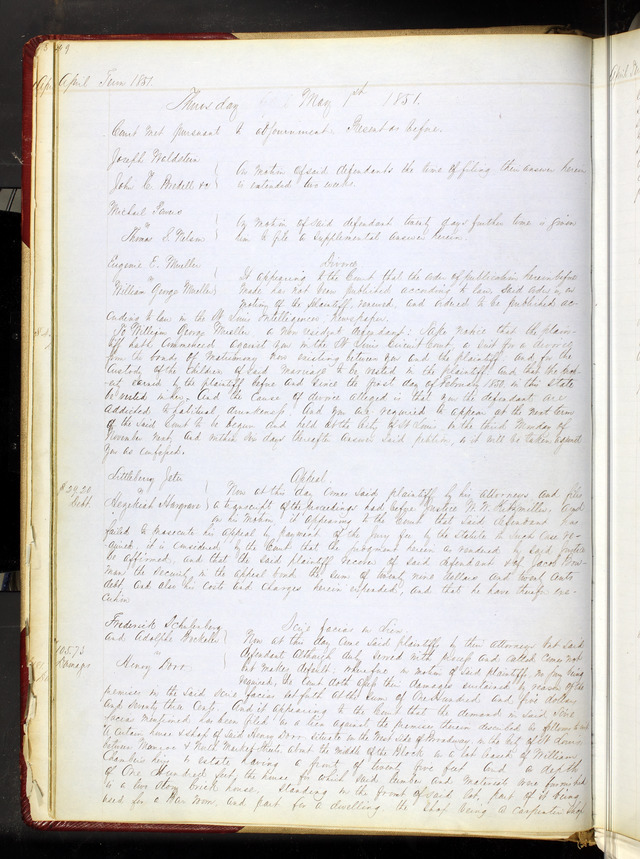 April Term 1851.
Thursday May 1st 1851.
Court met pursuant to adjournment. Present as before.
Joseph Waldstein
On motion of said defendants the time of filing their answer herein
John C. &c is extended two weeks.
Michael
vs
By motion of said defendant twenty days further time is given
Thomas S. Nelson him to file a supplemental answer herein.
Eugenie E. Mueller Divorce
vs
It appearing to the Court that the order of publication herein before
William George Mueller made has not been published according to law, said order is, on
motion of the plaintiff, renewed, and ordered to be published ac-
cording to law in the St Louis Intelligencer Newspaper.
To William George Mueller a Non resident defendant: Take notice that the plain-
tiff hath commenced against you in the St Louis Circuit Court, a suit for a divorce
from the bonds of Matrimony now existing between you and the plaintiff, and for the
custody of the children of said marriage to be vested in the plaintiff and that the
earned by the plaintiff before and since the first day of February 1850 in this State
be vested in her. And the cause of divorce alleged is that you the defendant are
addicted to habitual drunkenness. And you are required to appear at the next term
of the said Court to be begun and held at the City of St Louis on the third Monday of
November next, and within six days thereafter answer said petition, or it will be taken against
you as confessed.
Littleberry Jeter Appeal.
$29.20 vs
Debt. Now at this day comes said plaintiff by his attorneys, and files
Hezekiah Hargrave a transcript of the proceedings had before Justice W. W. and
on his motion, it appearing to the Court that said defendant has
failed to prosecute his appeal by payment of the jury fee by the Statute in such case re-
quired, it is considered by the Court that the judgment herein as rendered by said Justice
be affirmed, and that the said plaintiff recover of said defendant and of Jacob
man the security in the appeal bond the sum of twenty nine dollars and twenty cents
debt, and also his costs and charges herein expended, and that he have therefor exe-
cution.
Frederick Schulenburg Scire facias on Lien.
and Adolphe Boeckeler
105.73 vs
Damages Now at this day come said plaintiffs by their attorneys but said
Henry Dorr defendant although duly served with process and called comes not
but makes default, wherefore on motion of said plaintiffs, no jury being
required, the Court doth assess their damages sustained by reason of the
premises in the said scire facias set forth at the sum of One Hundred and five dollars
and Seventy three Cents. And it appearing to the Court that the demand in said Scire
facias mentioned has been filed as a lien against the premises therein described as follows to wit
A certain house & shop of said Henry Dorr situate on the West side of Broadway in the City of St Louis
between Monroe & North Market Streets about the middle of the Block on a lot leased of William
Chambers his estate having a front of twenty five feet and a depth
of One Hundred feet, the house for which said lumber and materials was furnished
is a two story brick house. Standing on the front of said lot, part of it being
used for a Ware room, and part for a dwelling, the shop being a carpenter shop